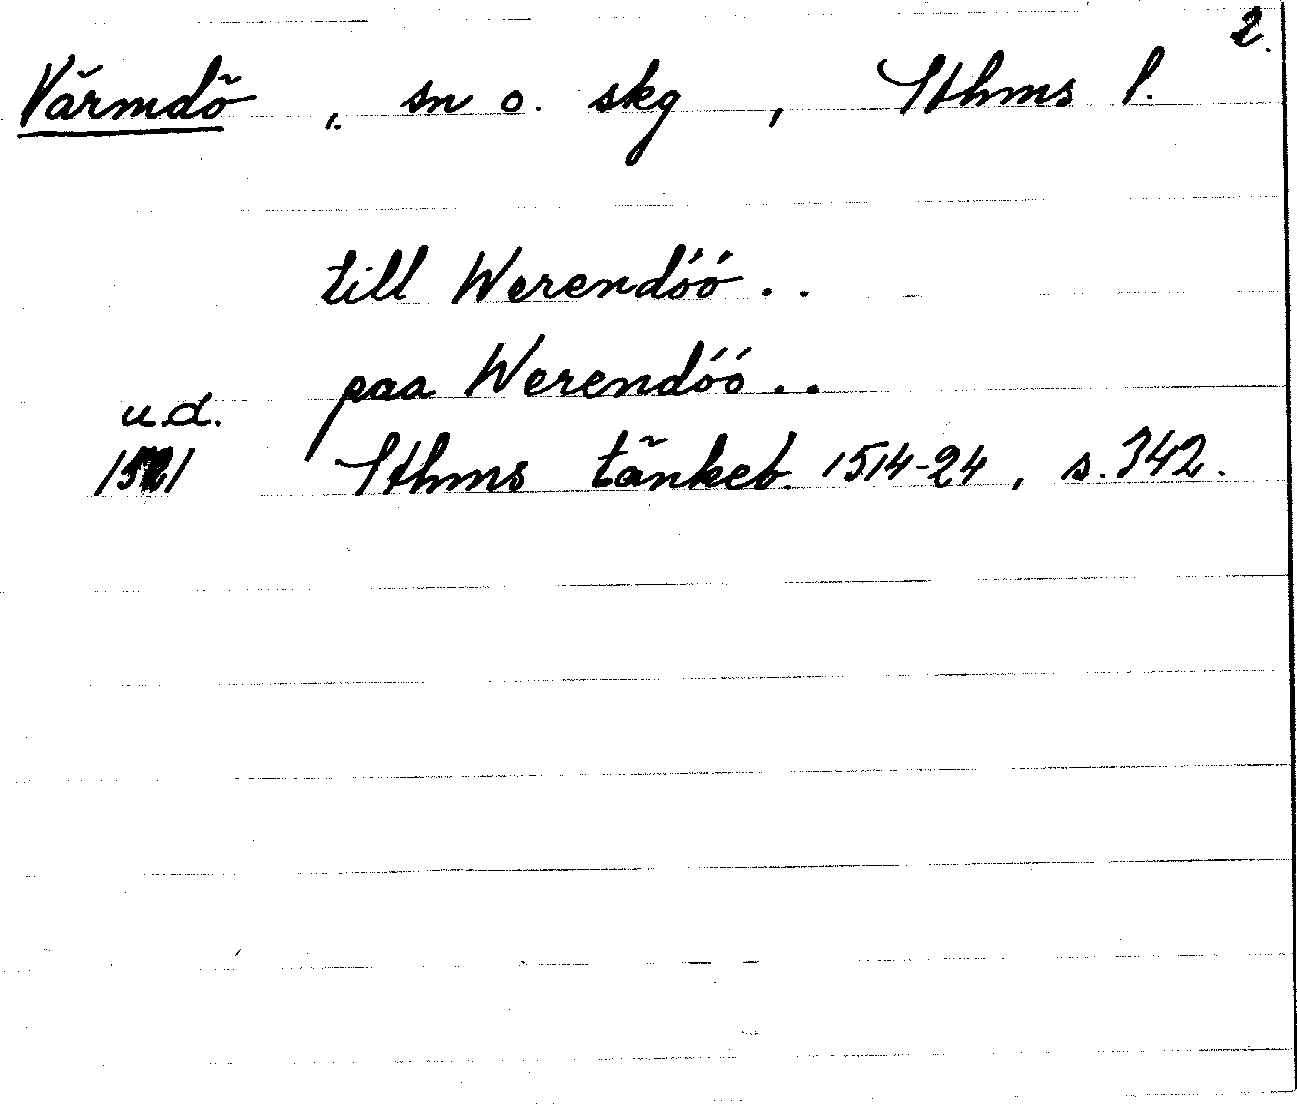 2.
Värmdö, sn o. skg, Sthms l.
till Werendóó..
paa Werendóó..
u.d.
1521 Sthms tänkeb. 1514-24, s. 342.